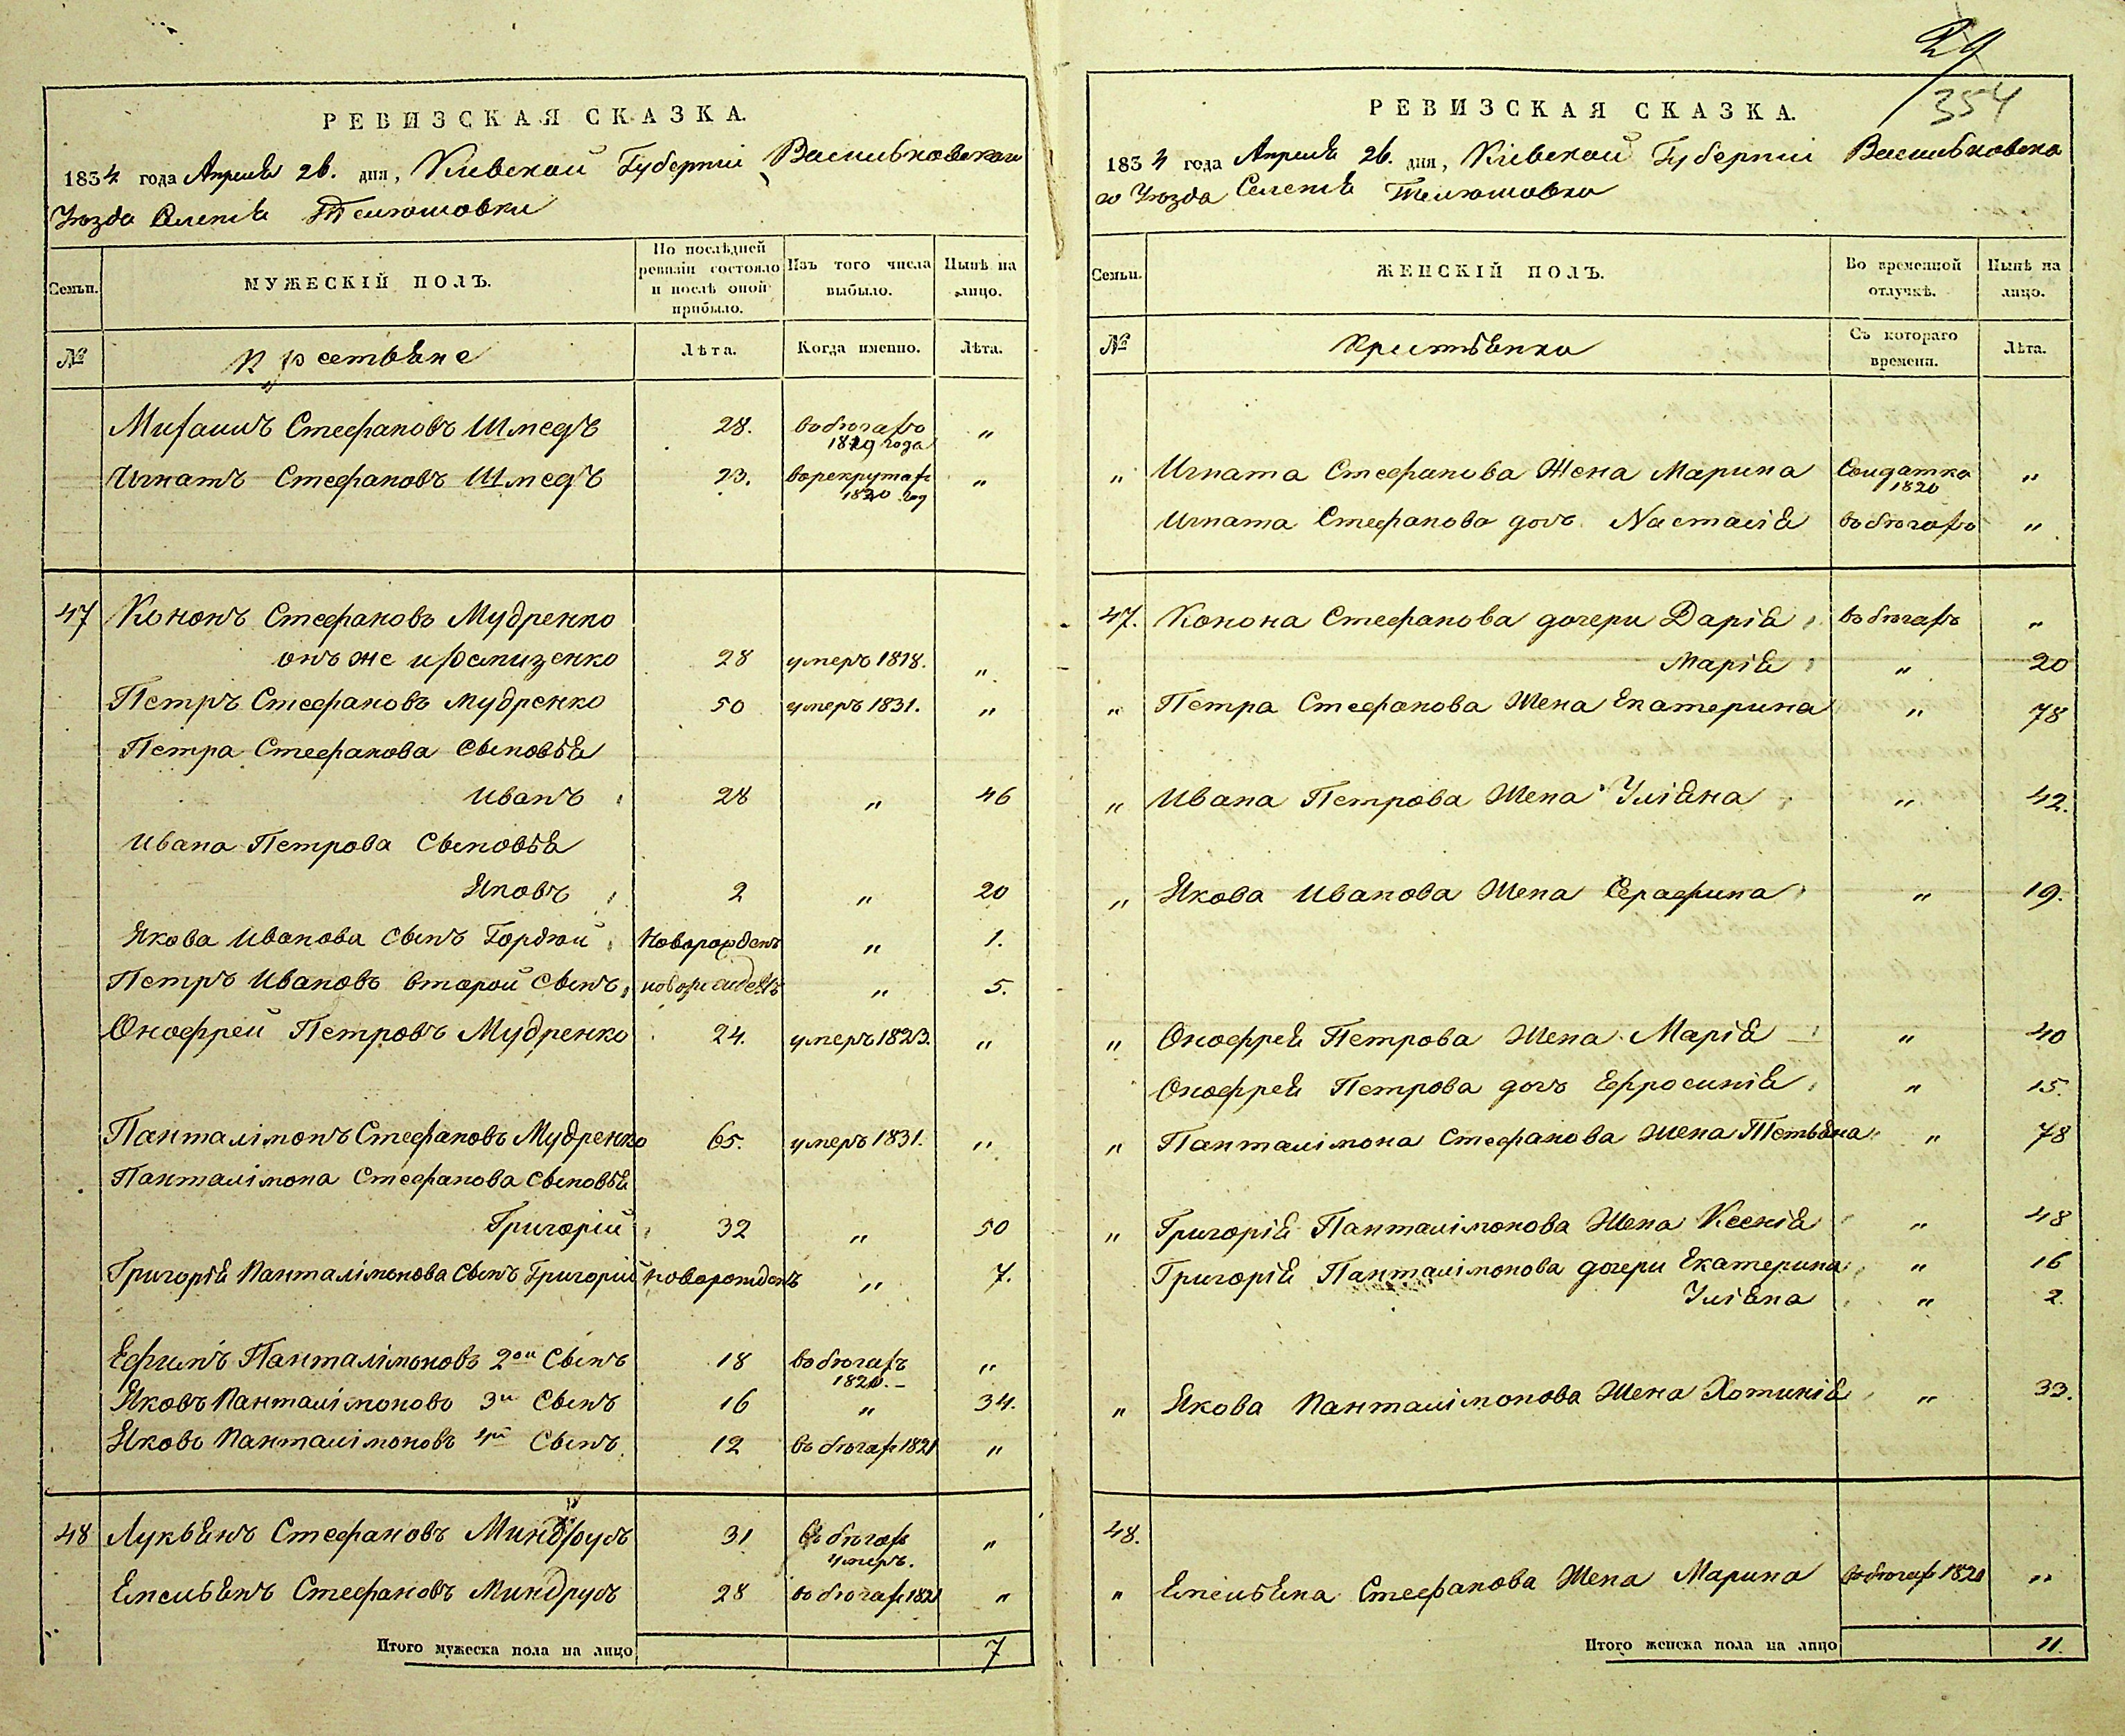 РЕВИЗСКАЯ СКАЗКА.
1834 года Апреля 26. дня, Кіевской Губерніи Васильковскаго
Уѣзда Селенія Телѣшовки
Семьи.
МУЖЕСКІЙ ПОЛЪ.
По послѣдней ревизіи состояло и послѣ оной прибыло.
Изъ того числа выбыло.
Нынѣ на лицо.
№
Крестьяне
Лѣта.
Когда именно.
Лѣта.
Михаилъ Стефановъ Шмедъ 28. въ бѣгахъ „
1829 года
Игнатъ Стефановъ Шмедъ 23. въ рекрутах „
1820 год
47 Кононъ Стефановъ Мудренко
онъ же 28 умеръ 1818. „
Петръ Стефановъ Мудренко 50 умеръ 1831. „
Петра Стефанова Сыновья
Иванъ 28 „ 46
Ивана Петрова Сыновья
Яковъ 2 „ 20
Якова Иванова Сынъ Гордѣй Новорожденъ „ 1.
Петръ Ивановъ второй Сынъ новорожденъ „ 5.
Онофрей Петровъ Мудренко 24. умеръ 1823. „
Панталімонъ Стефановъ Мудренко 65. умеръ 1831. „
Панталімона Стефанова Сыновья
Григорій 32 „ 50
Григорія Панталімонова Сынъ Григорій новорожденъ „ 7.
Ефимъ Панталімоновъ 2ой Сынъ 18 въ бѣгахъ „
1820. –
Яковъ Панталімоновъ 3й Сынъ 16 „ 34.
Яковъ Панталімоновъ Сынъ 12 въ бѣгах 1821 „
48 Лукьянъ Стефановъ Миндруль 31 въ бѣгах „
умеръ.
Емельянъ Стефановъ Миндруль 28 въ бѣгах 1821 „
Итого мужеска пола на лицо 7
29
354
РЕВИЗСКАЯ СКАЗКА.
1834 года Апреля 26. дня, Кіевской Губерніи Васильковска
го Уѣзда Селенія Телѣшовки
Семьи.
ЖЕНСКІЙ ПОЛЪ.
Во временной отлучкѣ.
Нынѣ на лицо.
№
Крестьянки
Съ котораго времени.
Лѣта.
„ Игната Стефанова Жена Марина Солдатка „
1820
Игната Стефанова дочъ Настасія въ бѣгахъ „
47. Конона Стефанова дочери Дарія въ бѣгахъ „
Марія „ 20
„ Петра Стефанова Жена Екатерина „ 78
„ Ивана Петрова Жена Уліяна „ 42.
„ Якова Иванова Жена Серафина „ 19.
„ Онофрея Петрова Жена Марія „ 40
Онофрея Петрова дочъ Ефросинія „ 15.
„ Панталімона Стефанова Жена Тетьяна „ 78
„ Григорія Панталімонова Жена Ксенія „ 48
Григорія Панталімонова дочери Екатерина „ 16
Уліяна „ 2.
„ Якова Панталімонова Жена Хотинія „ 33.
48.
„ Емельяна Стефанова Жена Марина въ бѣгах 1820 „
Итого женска пола на лицо 11.